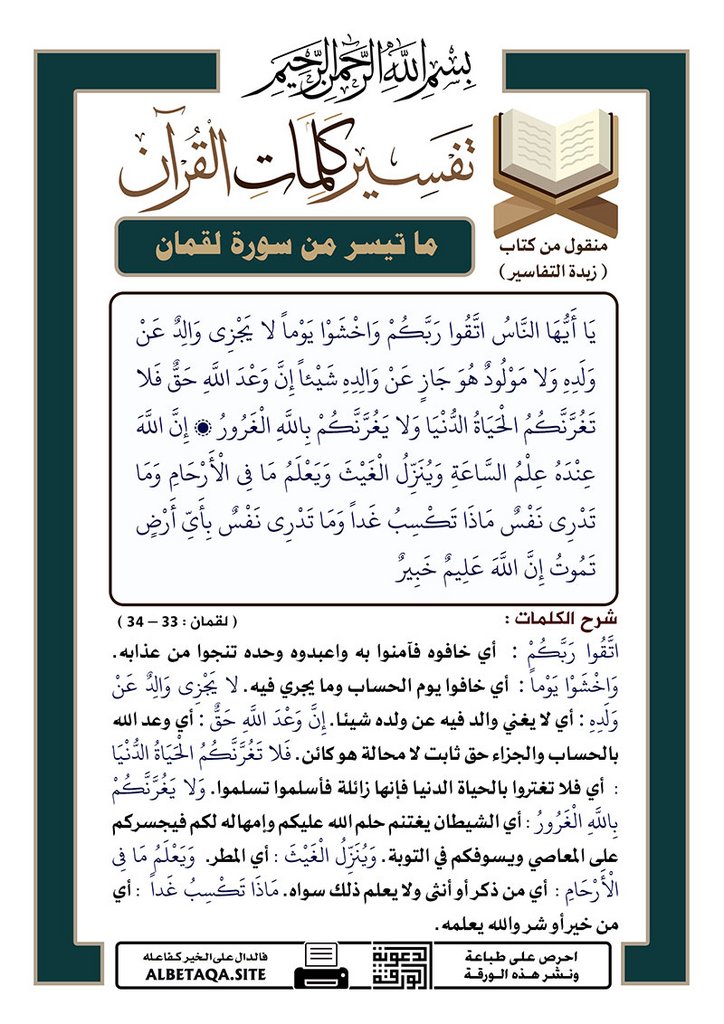 بِسْمِ اللَّهِ الرَّحْمَنِ الرَّحِيمِ
تَفْسِير كَلِمَاتِ الْقُرْآن
منقول من كتاب
( زبدة التفاسير )
ما تيسر من سورة لقمان
يَا أَيُّهَا النَّاسُ اتَّقُوا رَبَّكُمْ وَاخْشَوْا يَوْماً لا يَجْزِى وَالِدٌ عَنْ
وَلَدِهِ وَلا مَوْلُودٌ هُوَ جَازٍ عَنْ وَالِدِهِ شَيْئاً إِنَّ وَعْدَ اللَّهِ حَقٌّ فَلا
تَغُرَّنَّكُمُ الْحَيَاةُ الدُّنْيَا وَلا يَغُرَّنَّكُمْ بِاللَّهِ الْغَرُورُ ۝ إِنَّ اللَّهَ
عِنْدَهُ عِلْمُ السَّاعَةِ وَيُنَزِّلُ الْغَيْثَ وَيَعْلَمُ مَا فِى الْأَرْحَامِ وَمَا
تَدْرِى نَفْسٌ مَاذَا تَكْسِبُ غَداً وَمَا تَدْرِى نَفْسٌ بِأَىِّ أَرْضٍ
تَمُوتُ إِنَّ اللَّهَ عَلِيمٌ خَبِيرٌ
شرح الكلمات : ( لقمان : 33 – 34 )
اتَّقُوا رَبَّكُمْ : أي خافوه فآمنوا به واعبدوه وحده تنجوا من عذابه.
وَاخْشَوْا يَوْماً : أي خافوا يوم الحساب وما يجري فيه. لا يَجْزِى وَالِدٌ عَنْ
وَلَدِهِ : أي لا يغني والد فيه عن ولده شيئا. إِنَّ وَعْدَ اللَّهِ حَقٌّ : أي وعد الله
بالحساب والجزاء حق ثابت لا محالة هو كائن. فَلا تَغُرَّنَّكُمُ الْحَيَاةُ الدُّنْيَا
: أي فلا تغتروا بالحياة الدنيا فإنها زائلة فأسلموا تسلموا. وَلا يَغُرَّنَّكُمْ
بِاللَّهِ الْغَرُورُ : أي الشيطان يغتنم حلم الله عليكم وإمهاله لكم فيجسركم
على المعاصي ويسوفكم في التوبة. وَيُنَزِّلُ الْغَيْثَ : أي المطر. وَيَعْلَمُ مَا فِى
الْأَرْحَامِ : أي من ذكر أو أنثى ولا يعلم ذلك سواه. مَاذَا تَكْسِبُ غَداً : أي
من خير أو شر والله يعلمه.
احرص على طباعة
ونشر هذه الورقة
الورقة
الدعوية
فالدال على الخير كفاعله
ALBETAQA.SITE